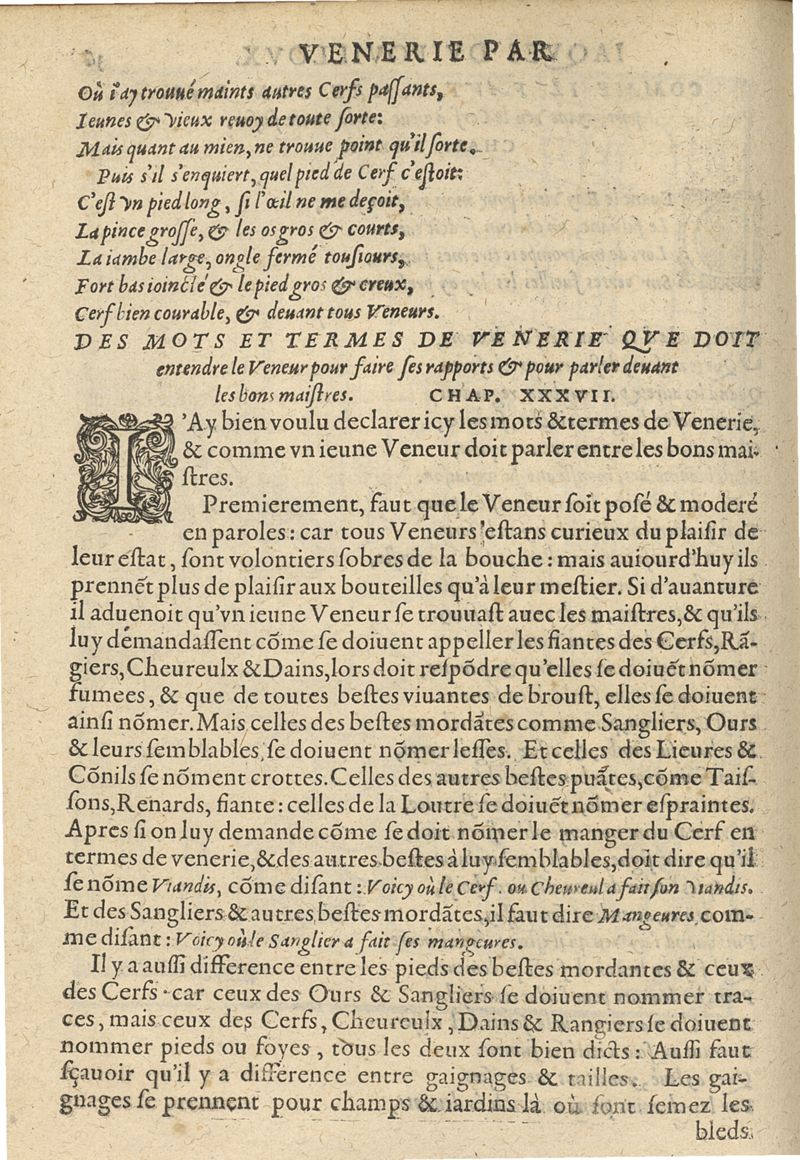 VENERIE PAR
Où i'ay trouué maints autres Cerfs paſſants,
Ieunes & vieux reuoy de toute ſorte:
Mais quant au mien, ne trouue point qu'il ſorte.
Puis s'il s'enquiert, quel pied de Cerf c'eſtoit:
C'eſt vn pied long, ſi l'œil ne me deçoit,
La pince groſſe, & les os gros & courts,
La iambe large, ongle fermé touſiours,
Fort bas ioinclé & le pied gros & creux,
Cerf bien courable, & deuant tous Veneurs.
DES MOTS ET TERMES DE VENERIE QVE DOIT
entendre le Veneur pour faire ſes rapports & pour parler deuant
les bons maiſtres. CHAP. XXXVII.
I'Ay bien voulu declarer icy les mots & termes de Venerie,
& comme vn ieune Veneur doit parler entre les bons mai-
ſtres.
Premierement, faut que le Veneur ſoit poſé & moderé
en paroles: car tous Veneurs eſtans curieux du plaiſir de
leur eſtat, ſont volontiers ſobres de la bouche: mais auiourd'huy ils
prennẽt plus de plaiſir aux bouteilles qu'à leur meſtier. Si d'auanture
il aduenoit qu'vn ieune Veneur ſe trouuaſt auec les maiſtres, & qu'ils
luy demandaſſent cõme ſe doiuent appeller les fiantes des Cerfs, Rã-
giers, Cheureulx & Dains, lors doit reſpõdre qu'elles ſe doiuẽt nõmer
fumees, & que de toutes beſtes viuantes de brouſt, elles ſe doiuent
ainſi nõmer. Mais celles des beſtes mordãtes comme Sangliers, Ours
& leurs ſemblables, ſe doiuent nõmer leſſes. Et celles des Lieures &
Cõnils ſe nõment crottes. Celles des autres beſtes puãtes, cõme Taiſ-
ſons, Renards, fiante: celles de la Loutre ſe doiuẽt nõmer eſpraintes.
Apres ſi on luy demande cõme ſe doit nõmer le manger du Cerf en
termes de venerie, & des autres beſtes à luy ſemblables, doit dire qu'il
ſe nõme Viandis, cõme diſant: Voicy où le Cerf. ou Cheureul a fait ſon viandis.
Et des Sangliers & autres beſtes mordãtes, il faut dire Mangeures, com-
me diſant: Voicy où le Sanglier a fait ſes mangeures.
Il y a auſſi difference entre les pieds des beſtes mordantes & ceux
des Cerfs. car ceux des Ours & Sangliers ſe doiuent nommer tra-
ces, mais ceux des Cerfs, Cheureulx, Dains & Rangiers ſe doiuent
nommer pieds ou foyes, tous les deux ſont bien dicts: Auſſi faut
ſçauoir qu'il y a difference entre gaignages & tailles. Les gai-
gnages ſe prennent pour champs & iardins là où ſont ſemez les
bleds.